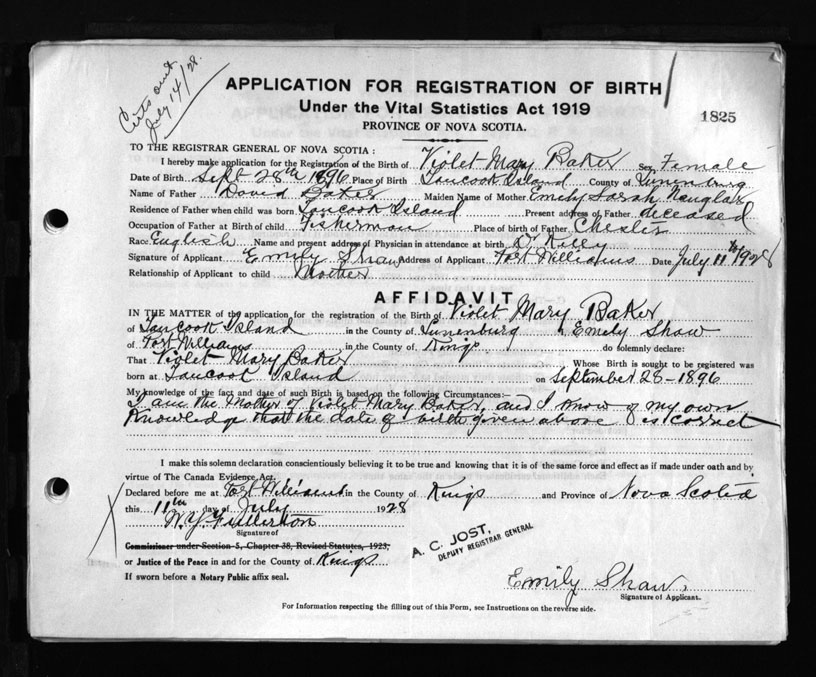 Certs out
July 14/28.
APPLICATION FOR REGISTRATION OF BIRTH
Under the Vital Statistics Act 1919
PROVINCE OF NOVA SCOTIA.
1825
TO THE REGISTRAR GENERAL OF NOVA SCOTIA :
I hereby make application for the Registration of the Birth of Violet Mary Baker Sex Female
Date of Birth Sept 28th 1896 Place of Birth Tancook Island County of Lunenburg
Name of Father David Baker Maiden Name of Mother Emily Sarah
Residence of Father when child was born Tancook Island Present address of Father deceased
Occupation of Father at Birth of child Fisherman Place of birth of Father Chester
Race English Name and present address of Physician in attendance at birth Dr
Signature of Applicant Emily Shaw Address of Applicant Port Williams Date July 11th 1928
Relationship of Applicant to child Mother
AFFIDAVIT
IN THE MATTER of the application for the registration of the Birth of Violet Mary Baker
of Tancook Island in the County of Lunenburg I, Emily Shaw
of Port Williams in the County of Kings do solemnly declare:
That Violet Mary Baker Whose Birth is sought to be registered was
born at Tancook Island on September 28-1896
My knowledge of the fact and date of such Birth is based on the following Circumstances:-
I am the Mother of Violet Mary Baker, and I know of my own
Knowledge that the date of birth given above is correct
I make this solemn declaration conscientiously believing it to be true and knowing that it is of the same force and effect as if made under oath and by
virtue of The Canada Evidence Act.
Declared before me at Port Williams in the County of Kings and Province of Nova Scotia
this 11th day of July 1928
W. Y. Fullerton
Signature of
Commissioner under Section 5, Chapter 38, Revised Statutes, 1923,
or Justice of the Peace in and for the County of Kings
If sworn before a Notary Public affix seal.
A. C. JOST,
DEPUTY REGISTRAR GENERAL
Emily Shaw,
Signature of Applicant.
For Information respecting the filling out of this Form, see Instructions on the reverse side.